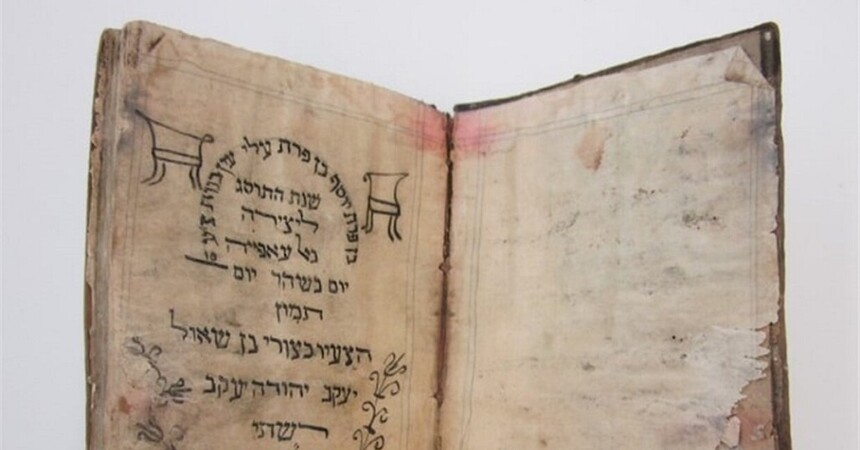 בן פרת יוסף בן פרת עלי עין בנות צעדה
שנת התרסג
ליצירה
יום בשהר יום
תמוז
הצעיר בצורי בן שאול
יעקב יהודה יעקב
רשתי